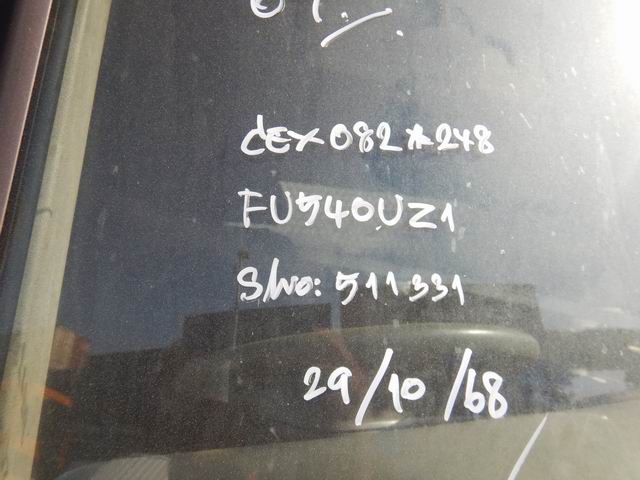 dEX082*248
FU540UZ1
S/No: 511331
29/10/68